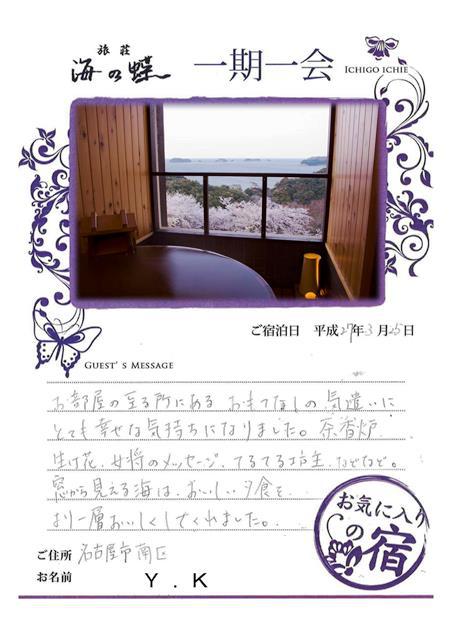 旅荘
海の蝶
一期一会
ICHIGO ICHIE
ご宿泊日 平成27年3月25日
GUEST'S MESSAGE
お部屋の至る所にある おもてなしの気遣いに
とても幸せな気持ちになりました。茶香炉、
生け花、女将のメッセージ、てるてる坊主、などなど。
窓から見える海は、おいしい夕食を、
より一層おいしくしてくれました。
お気に入り
の
宿
ご住所 名古屋市南区
お名前 Y.K